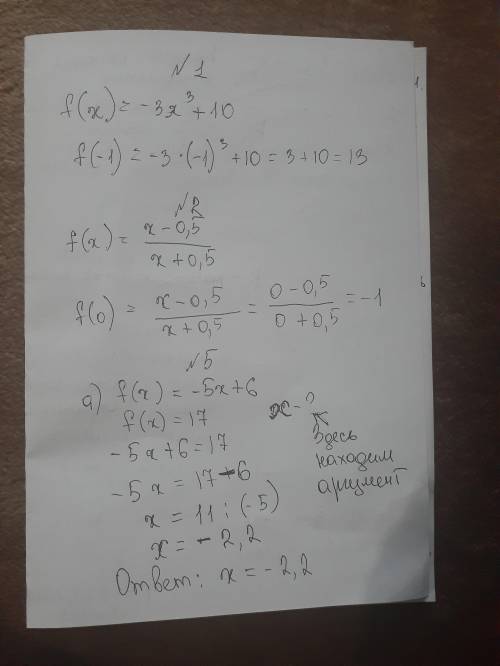 №1
f(x) = -3x³+10
f(-1) = -3·(-1)³+10 = 3+10 = 13
№2
f(x) = x-0,5 / x+0,5
f(0) = x-0,5 / x+0,5 = 0-0,5 / 0+0,5 = -1
№5
а) f(x) = -5x+6
f(x) = 17
x - ?
-5x+6 = 17
здесь
находим
аргумент
-5x = 17-6
x = 11 : (-5)
x = -2,2
Ответ: x = -2,2
1.